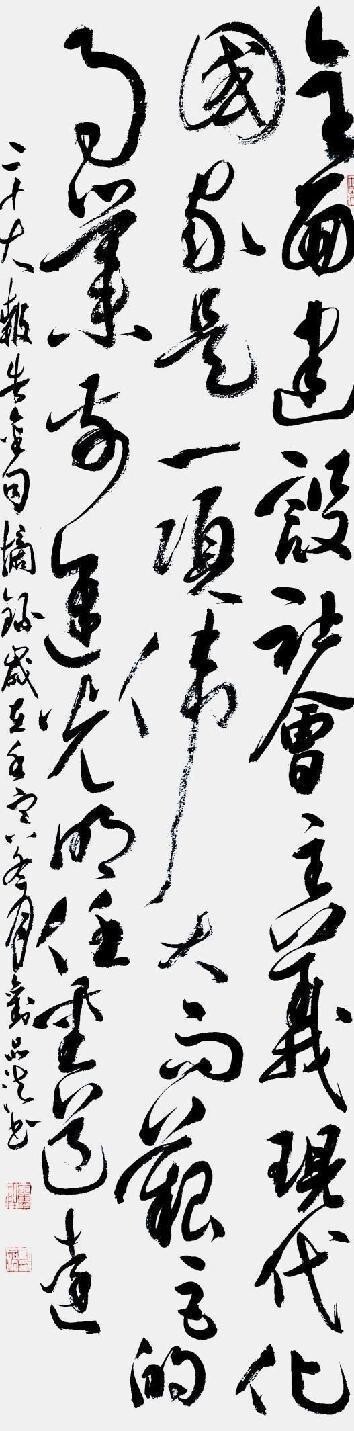 全面建設社會主義現代化
國家是一項偉大而艱巨的
事業前途光明任重道遠
二十大報告金句摘錄歲在壬寅冬月劉品洪书